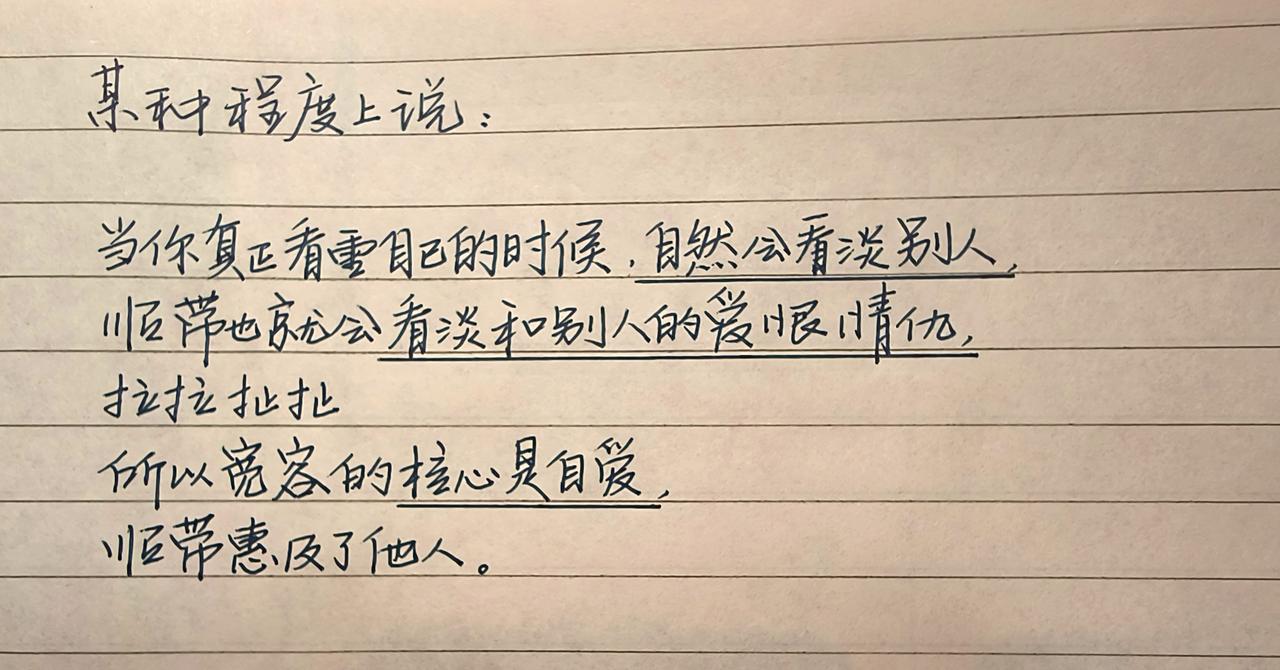 某种程度上说：
当你真正看重自己的时候，自然会看淡别人，
顺带也就会看淡和别人的爱恨情仇，
拉拉扯扯
所以宽容的核心是自爱，
顺带惠及了他人。